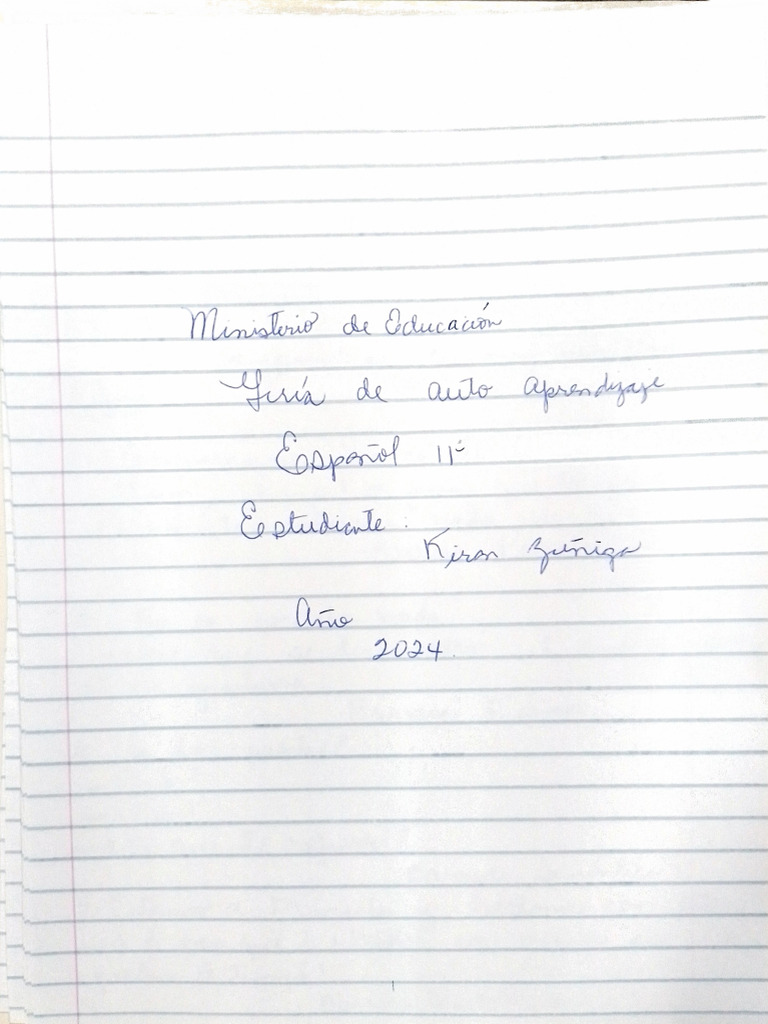 Ministerio de Educación
Guía de auto aprendizaje
Español 11º
Estudiante:
Kiran Zúñiga
Año
2024.